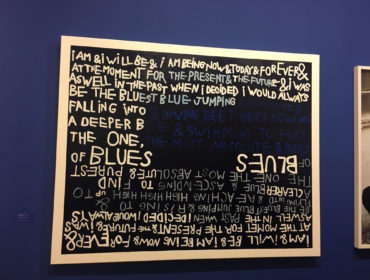 iAM & i WiLL BE & i AM BEiNG NOW & TODAY & FOREVER &
AT THE MOMENT FOR THE PRESENT & THE FUTURE & i WAS
ASWELL iN THE PAST WHEN i DECiDED i WOULD ALWAYS
BE THE BLUEST BLUE JUMPiNG
FALLiNG iNTO & DiViNG DEEP DEEP DOWN
A DEEPER B & SWiMMiNG TO FiND
THE ONE, THE MOST ABSOLUTE &
OF BLUES
iAM & i WiLL BE & i AM BEiNG NOW & FOREVER &
AT THE MOMENT FOR THE PRESENT & THE FUTURE & i WAS
ASWELL iN THE PAST WHEN i DECiDED i WOULD ALWAYS
BE THE BLUEST BLUE & RiSiNG
& REACHiNG HiGH HiGH HiGH UP
A CLEARER BLUE & ASCENDiNG TO FiND
THE ONE THE MOST ABSOLUTE & PUREST
OF BLUES